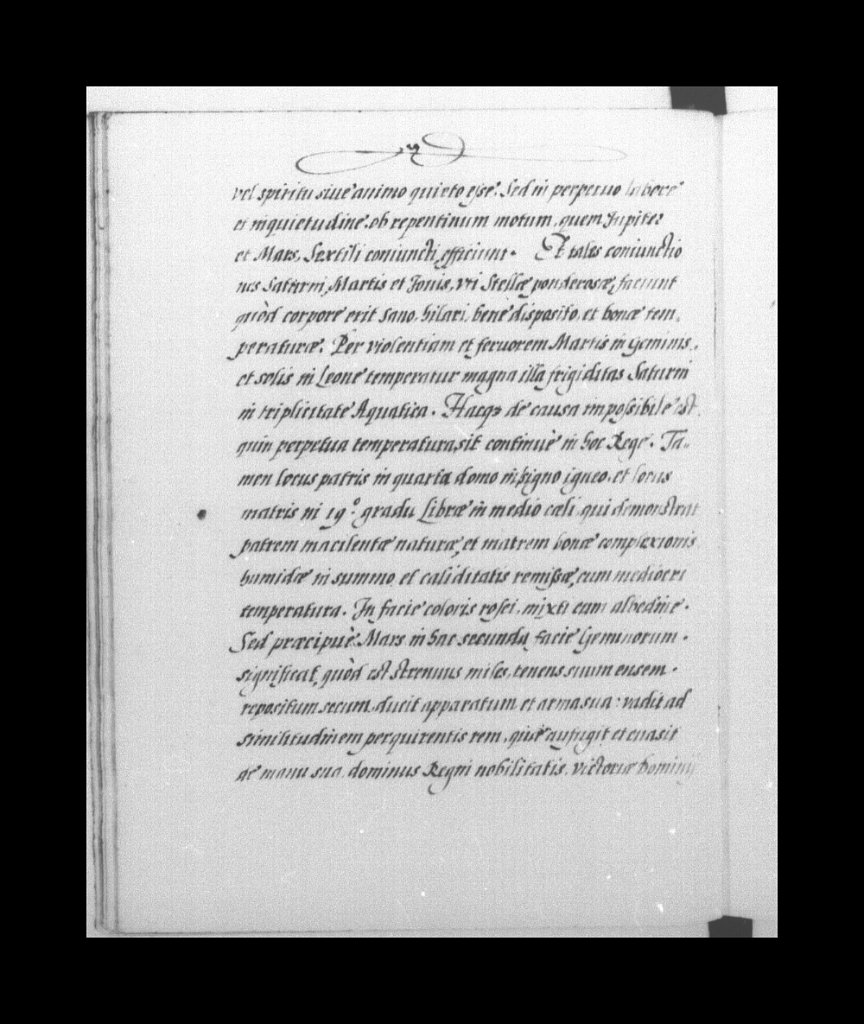 vel spiritu siue animo quieto esse. Sed in perpetuo labore
et inquietudine. ob repentinum motum, quem Iupiter
et Mars, Sextili coniuncti, efficiunt. Et tales coniunctio
nes Saturni, Martis et Iouis, vti Stellæ ponderosæ, faciunt
quòd corpore erit sano, hilari, benè disposito, et bonæ tem,
peraturæ. Per violentiam et feruorem Martis in Geminis,
et solis in Leone temperatur magna illa frigiditas Saturni
in triplicitate Aquatica. Hacq3 de causa impossibile est,
quin perpetua temperatura sit continuè in hoc Rege. Ta=
men locus patris in quarta domo in signo igneo, et locus
matris in 19.º gradu Libræ in medio cæli, qui demonstrat
patrem macilentæ naturæ, et matrem bonæ complexionis
humidæ in summo el caliditatis remissæ, cum mediocri
temperatura. In facie coloris rosei, mixti cum albedine.
Sed præcipuè Mars in hac secunda facie Geminorum.
significat, quòd est strenuus miles, tenens suum ensem.
repositum secum, ducit apparatum et arma sua: vadit ad
similitudinem perquirentis rem, quæ aufugit et euasit
de manu sua, dominus Regni nobilitatis, victoriæ homini